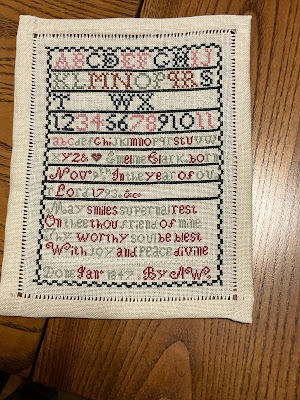 ABCDEFGHIJ
KLMNOPQRS
T WX
1234567891011
abcdefghijklmnopqrstuvw
xyz& ♥ Emeline Clark born
Nov 9th In the year of our
Lord 1793 &c
May smiles supernal rest
On thee thou friend of mine
Thy worthy soul be blest
With joy and peace divine
Done Jan 1847 By AW